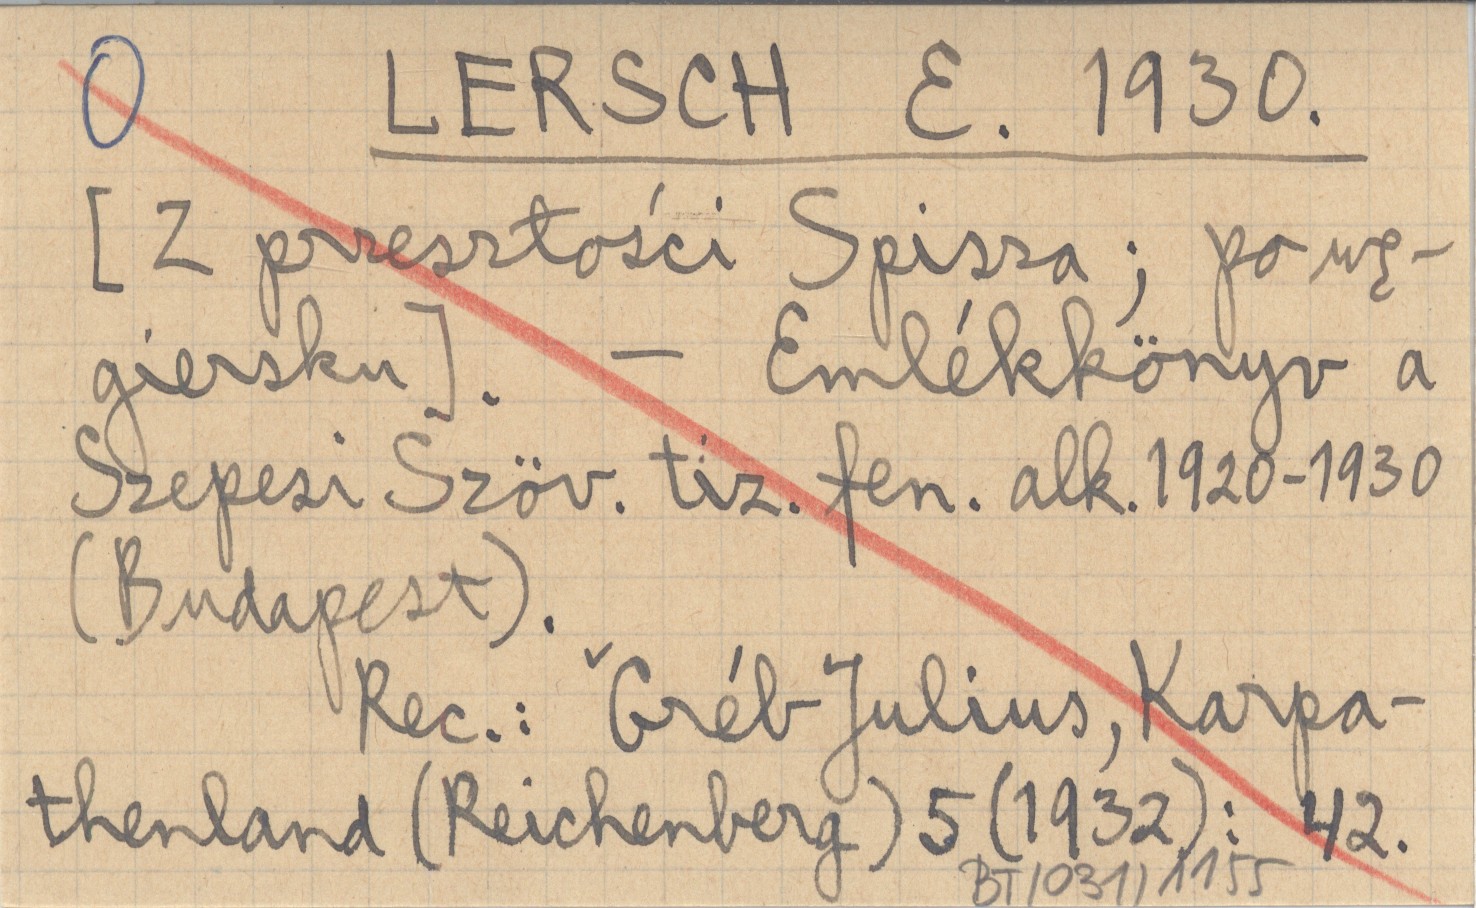 0 LERSCH E. 1930.
[Z przeszłości Spisza; po wę-
giersku]. — Emlékkönyv a
Szepesi Szöv. tiz. fen. alk. 1920-1930
(Budapest).
Rec.: ˇGréb Julius, Karpa-
thenland (Reichenberg) 5 (1932): 42.
BT/031/1155